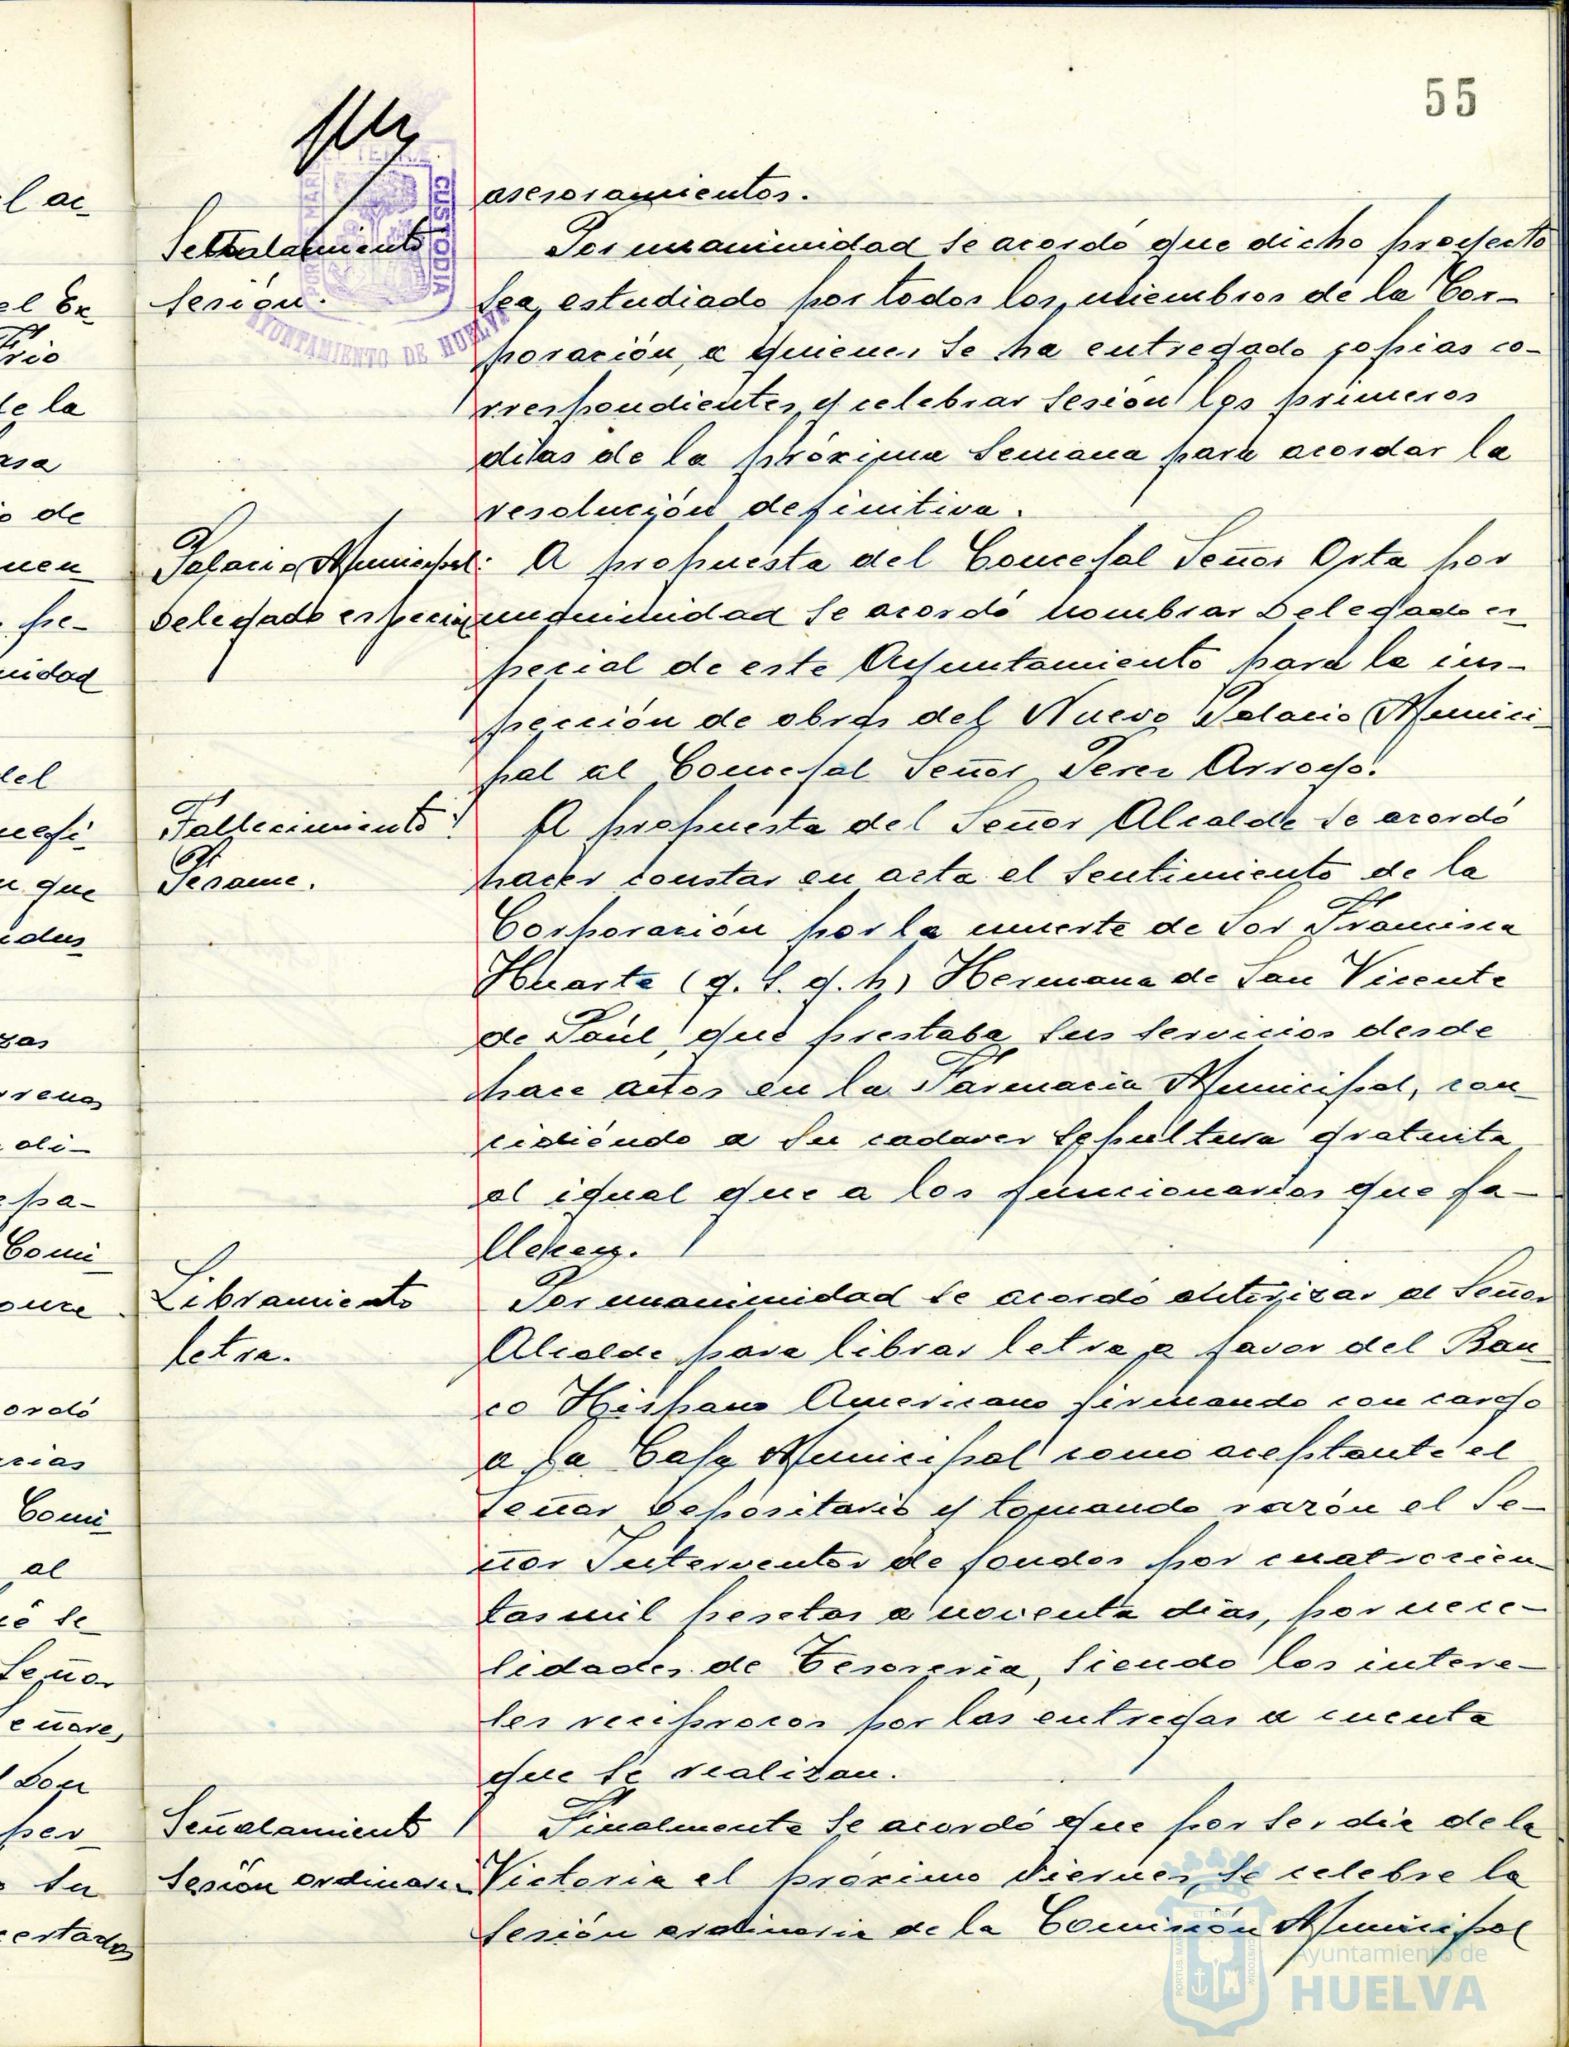 55
asesoramientos.
Señalamiento
sesión.
Por unanimidad se acordó que dicho proyecto
sea estudiado por todos los miembros de la Cor-
poración, a quienes se ha entregado copias co-
rrespondientes y celebrar sesión los primeros
dias de la próxima semana para acordar la
resolución definitiva.
Palacio Municipal:
Delegado especial
A propuesta del Concejal Señor Orta por
unanimidad se acordó nombrar Delegado es-
pecial de este Ayuntamiento para la ins-
pección de obras del Nuevo Palacio Munici-
pal al Concejal Señor Perez Arroyo.
Fallecimiento:
Pesame.
A propuesta del Señor Alcalde se acordó
hacer constar en acta el sentimiento de la
Corporación por la muerte de Sor Francisca
Huarte (q. s. g. h) Hermana de San Vicente
de Paúl, que prestaba sus servicios desde
hace años en la Farmacia Municipal, con-
cidiéndo a su cadaver sepultura gratuita
al igual que a los funcionarios que fa-
llecen.
Libramiento
letra.
Por unanimidad se acordó autorizar al Señor
Alcalde para librar letra a favor del Ban-
co Hispano Americano firmando con cargo
a la Caja Municipal como aceptante el
Señor Depositario y tomando razón el Se-
ñor Interventor de fondos por cuatrocien-
tas mil pesetas a noventa días, por nece-
sidades de Tesoreria, siendo los intere-
ses reciprocos por las entregas a cuenta
que se realizan.
Señalamiento
sesión ordinaria
Finalmente se acordó que por ser dia de la
Victoria el próximo viernes, se celebre la
sesión ordinaria de la Comisión Municipal
CUSTODIA
AYUNTAMIENTO DE HUELVA
l ac-
el Ex-
de la
asa
o de
nuen-
pe-
nidad
del
que
dus-
zas
di-
pa-
Comi-
ordó
cias
Comi-
al
se
Señor
Señores,
Don
per-
su
certados
Ayuntamiento de
HUELVA